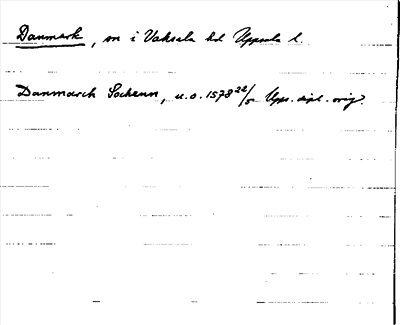 Danmark, sn i Vaksala hd Uppsala l.
Danmarck Sockenn, u.o. 1578 22/5 Upps. dipl. orig.